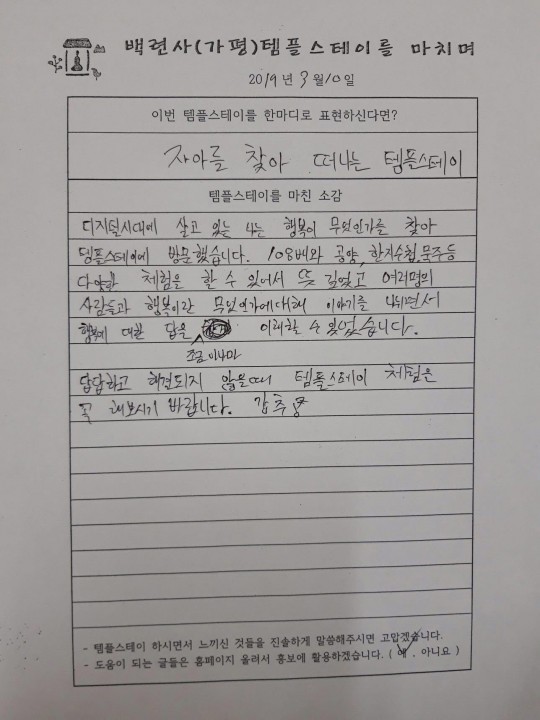 백련사(가평)템플스테이를 마치며
2019년 3월 10일
이번 템플스테이를 한마디로 표현하신다면?
자아를 찾아 떠나는 템플스테이
템플스테이를 마친 소감
디지털시대에 살고 있는 나는 행복이 무엇인가를 찾아
템플스테이에 방문했습니다. 108배와 공양, 한지수첩, 묵주등
다양한 체험을 할 수 있어서 뜻 깊었고 여러명의
사람들과 행복이란 무엇인가에대해 이야기를 나뉘면서
행복에 대한 답을 이해할 수 있었습니다.
조금이나마
답답하고 해결되지 않을때 템플스테이 체험은
꼭 해보시기 바랍니다. 강추
- 템플스테이 하시면서 느끼신 것들을 진솔하게 말씀해주시면 고맙겠습니다.
- 도움이 되는 글들은 홈페이지 올려서 홍보에 활용하겠습니다. ( 예 , 아니요 )